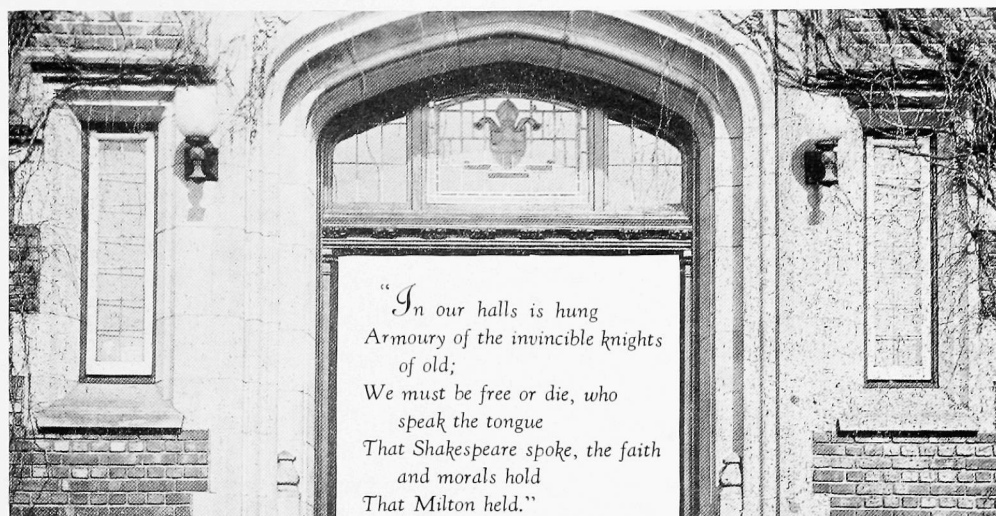 “In our halls is hung
Armoury of the invincible knights
of old;
We must be free or die, who
speak the tongue
That Shakespeare spoke, the faith
and morals hold
That Milton held.”